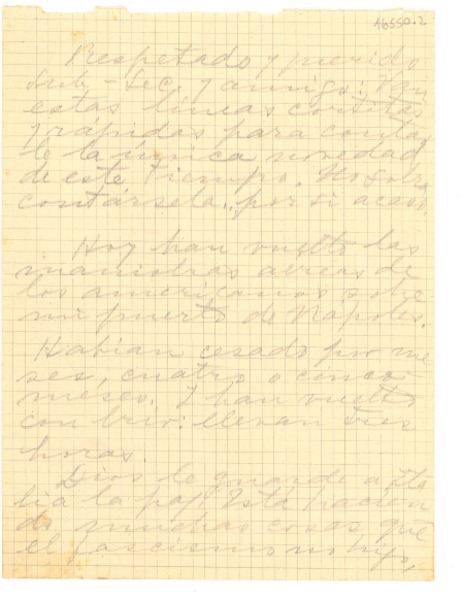 46550.2
Respetado y querido
Sub-Sec. y amigo: Van
estas líneas cortitas
y rápidas para contar
le la única novedad
de este tiempo.
contársela, por si acaso.
Hoy han vuelto las
maniobras aéreas de
los americanos sobre
mi puerto de Nápoles.
Habían cesado por me
ses, cuatro o cinco
meses. Y han vuelto
con brío: llevan tres
horas.
Dios le guarde a Ita
lia la paz. Está hacien
do muchas cosas que
el fascismo no hizo,